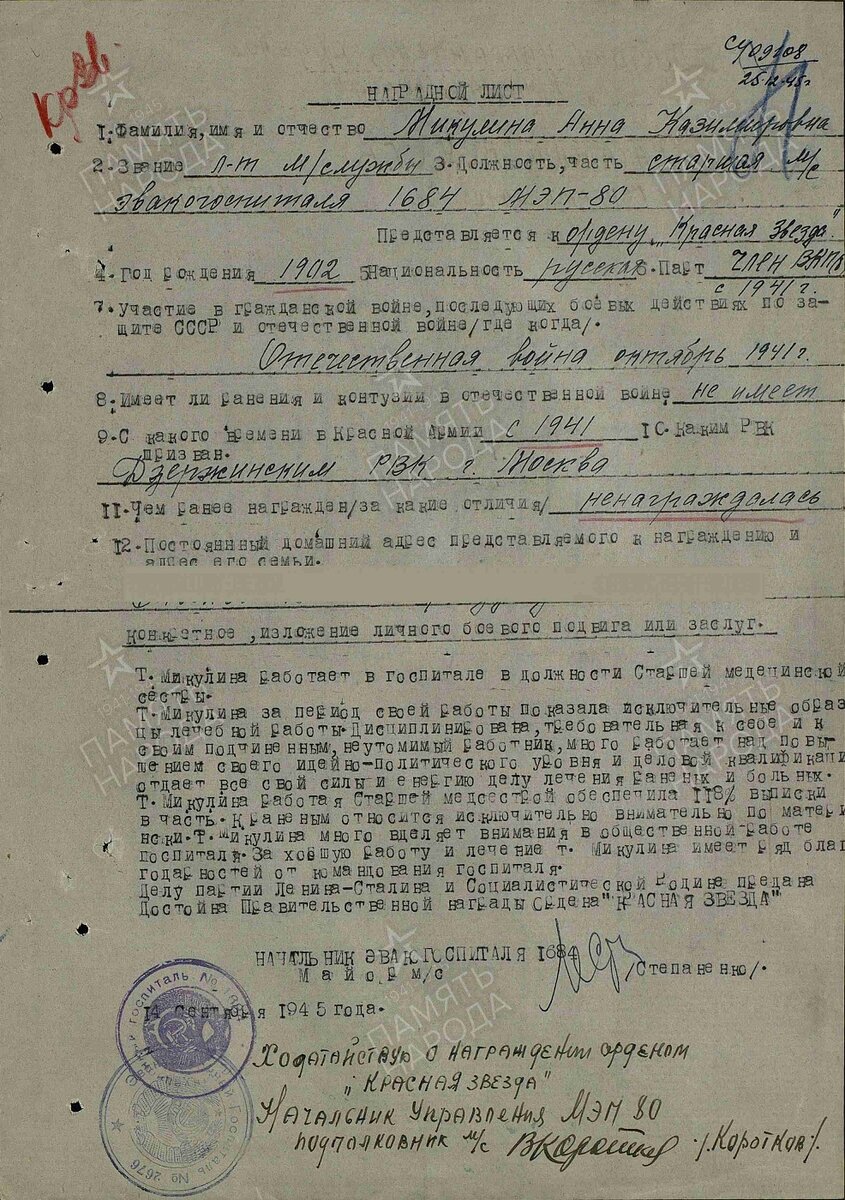 КрЗв.
с/409308
25.12.45г
НАГРАДНОЙ ЛИСТ
1.Фамилия,имя и отчество Микулина Анна Казимировна
2.Звание л-т м/службы 3.Должность,часть старшая м/с
эвакогоспиталя 1684 МЭП-80
Представляется к ордену „Красная Звезда"
4.Год рождения 1902 5Национальность русская 6.Парт член ВКП/б
с 1941 г.
7.Участие в гражданской войне,последующих боевых действиях по за-
щите СССР и отечественной войне/где когда/.
Отечественная война октябрь 1941 г.
8.Имеет ли ранения и контузии в отечественной войне не имеет
9.С какого времени в Красной Армии с 1941 10.Каким РВК
призван.
Дзержинским РВК г. Москва
11.Чем ранее награжден/за какие отличия/ ненаграждалась
12.Постояннный домашний адрес представляемого к награждению и
адрес его семьи.
конкретное ,изложение личного боевого подвига или заслуг.
Т.Микулина работает в госпитале в должности Старшей медецинской
сестры.
Т.Микулина за период своей работы показала исключительные образ
цы лечебной работы.Дисциплинирована,требовательная к себе и к
своим подчиненным,неутомимый работник,много работает над повы-
шением своего идейно-политического уровня и деловой квалификаци
отдает все свой силы и енергию делу лечения раненых и больных.
Т.Микулина работая Старшей медсестрой обеспечила 118% выписки
в часть.К раненым относится исключительно внимательно по матери
нски.Т.Микулина много вделяет внимания в общественной работе
госпиталя.За хоошую работу и лечение т. Микулина имеет ряд благ
годарностей от командования госпиталя.
Делу партии Ленина-Сталина и Социалистической Родине предана
Достойна Правительственной награды Ордена"КРАСНАЯ ЗВЕЗДА"
НАЧАЛЬНИК ЭВАКОГОСПИТАЛЯ 1684
Майор м/с /Степаненко/.
14 сентября 1945 года.
Ходатайствую о награждении орденом
„КРАСНАЯ ЗВЕЗДА"
Начальник Управления МЭП 80
подполковник м/с ВКоротков /.Коротков/.
Госпиталь № 1684
Госпиталь № 2676
ПАМЯТЬ НАРОДА